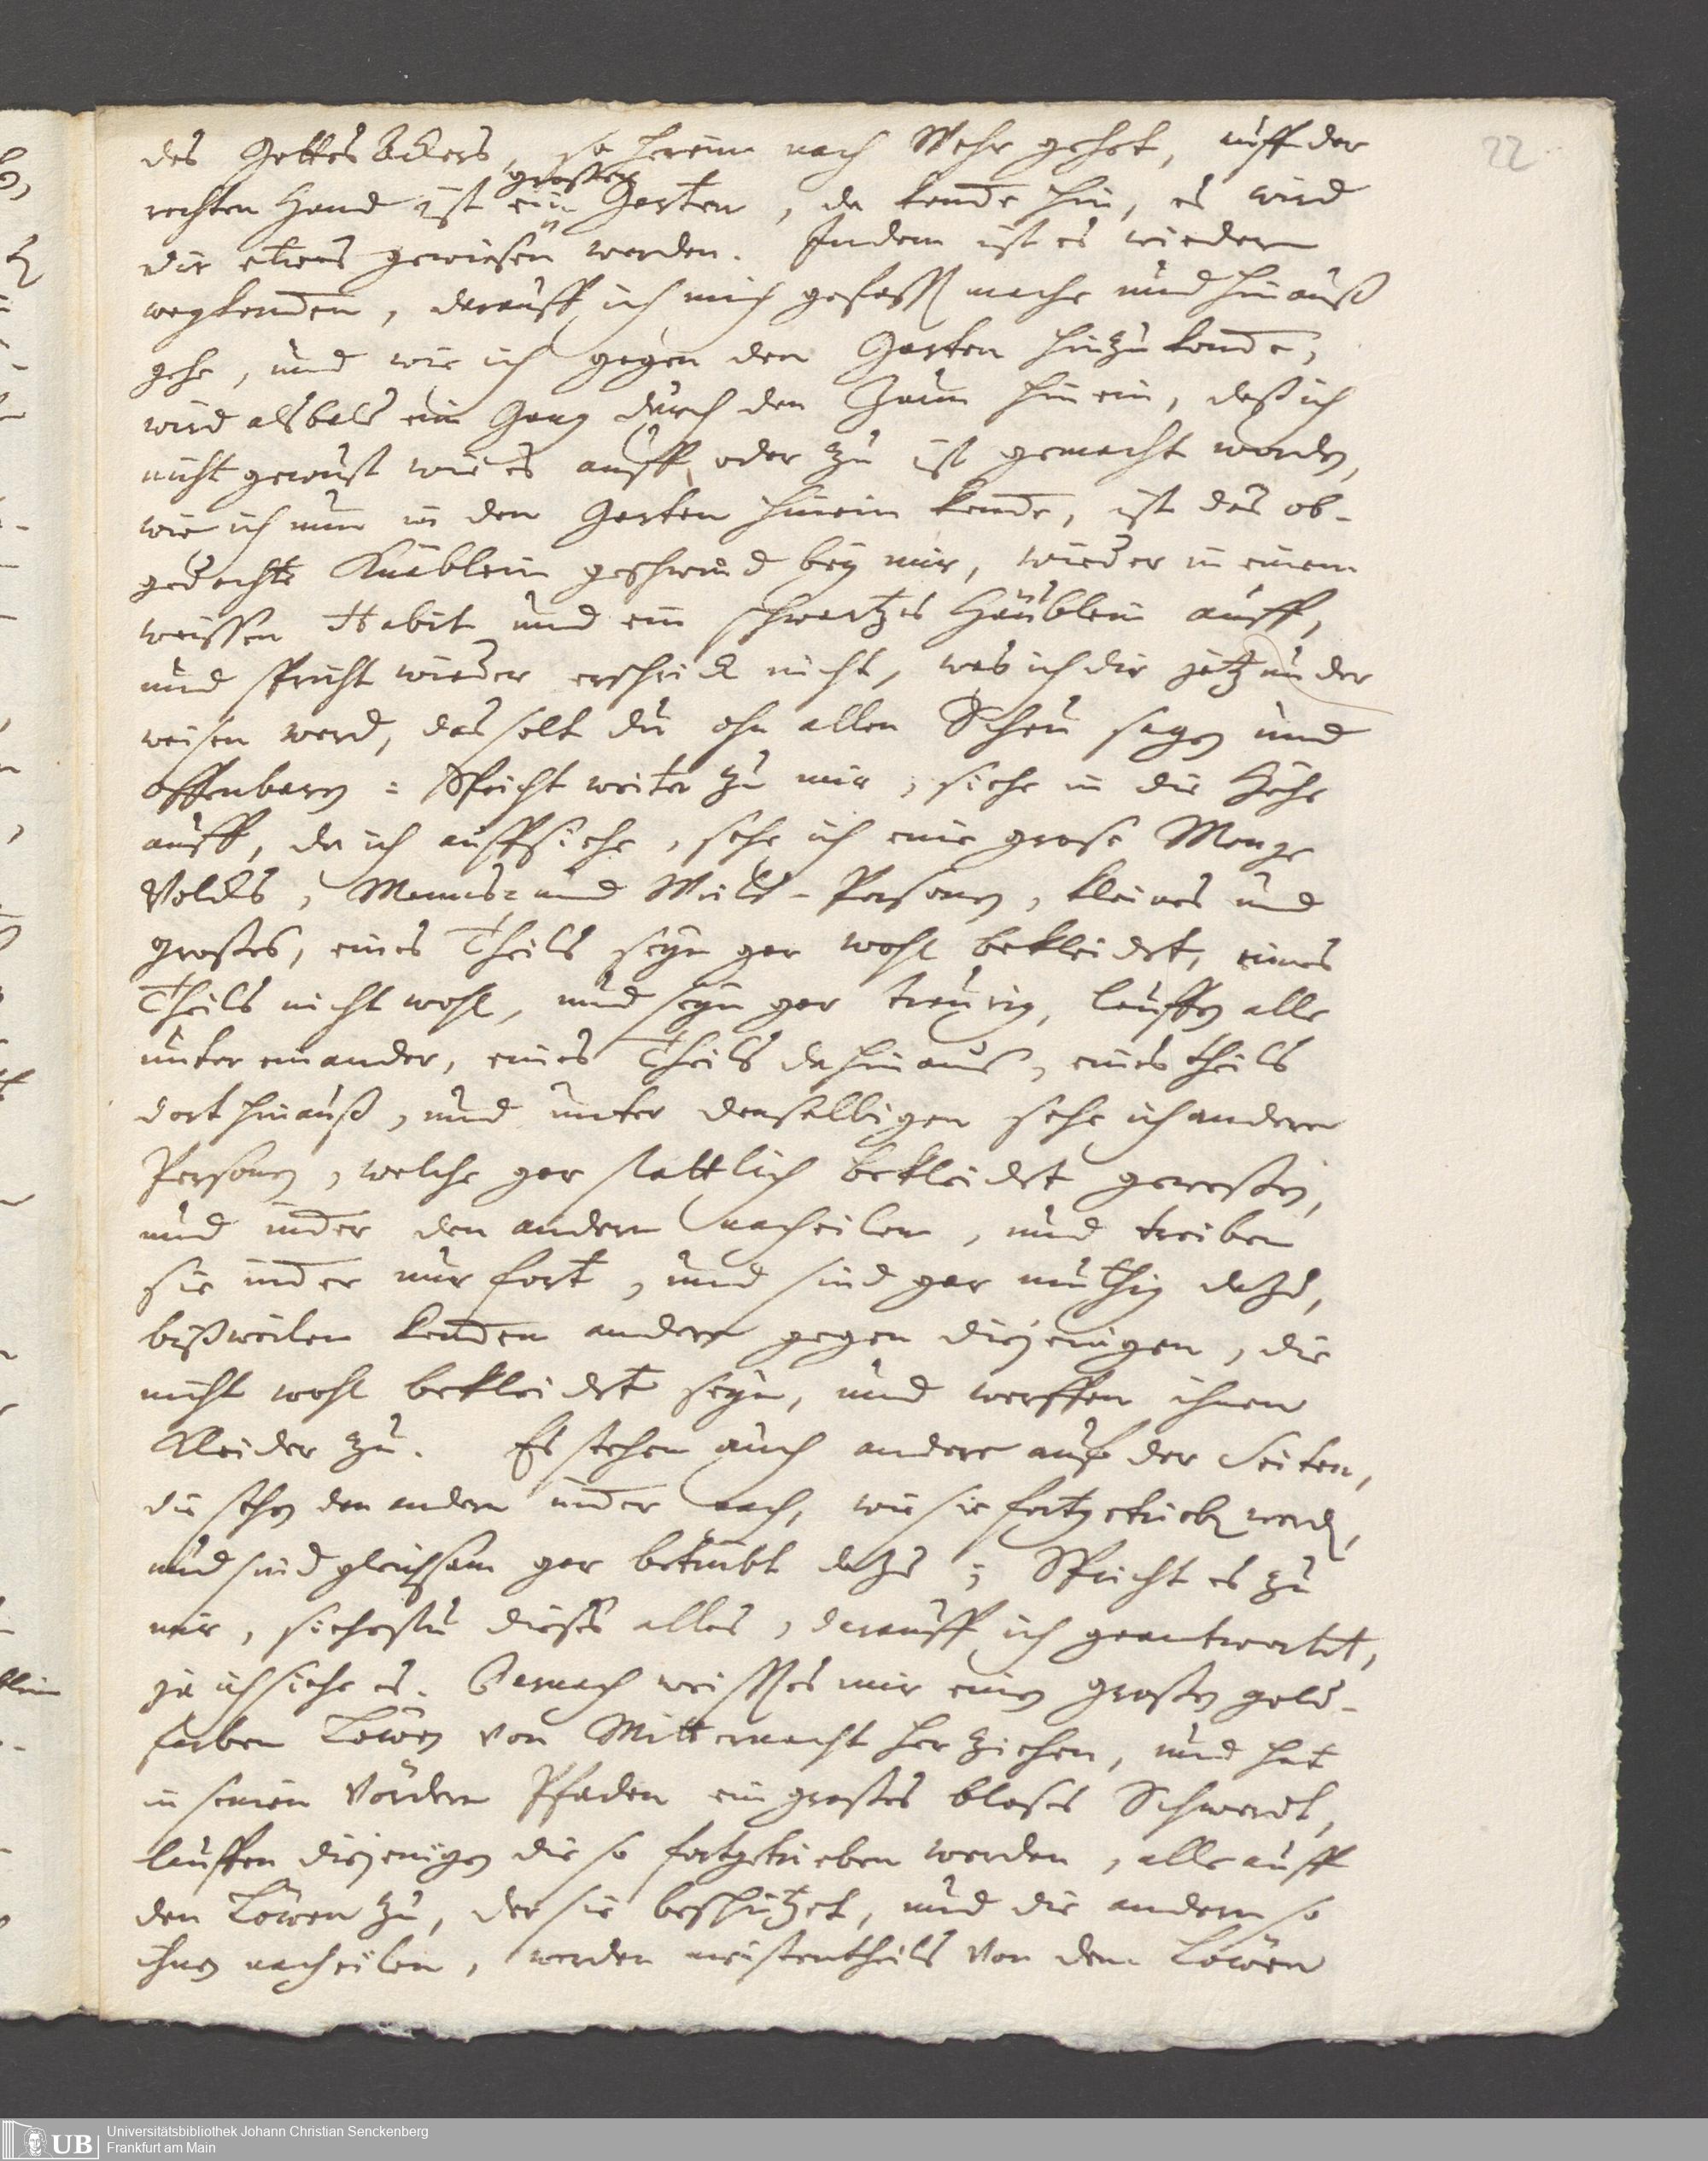 22
des Gottes Ackers, so herein nach Wehr gehet, auff der
rechten Hand ist ein großer Garten, da kom̄e hin, es wird
dir etwas gewiesen werden. Indem ist es wiederu͞m
wegkom̄en, darauff ich mich gefasst mache und hinauß
gehe, und wie ich gegen den Garten hinzu kom̄e,
wird alsbald ein Gang durch den Zaun hinein, daß ich
nicht gewust wie es auff oder zu ist gemacht worden,
wie ich nun in den Garten hinein kom̄e, ist das ob-
gedachte Knäblein geschwind bey mir, wieder in einem
weissen Habit und ein schwartzes Häublein auff,
und spricht wieder erschrick nicht, was ich dir jetzunder
weisen werd, das solt du ohn allen Scheu sagen und
offenbaren: Spricht weiter zu mir, siehe in die Höhe
auff, da ich auffsiehe, sehe ich eine grose Menge
Volcks, Manns- und Weibs-Personen, kleines und
großes, eines Theils seyn gar wohl bekleidet, eines
Theils nicht wohl, und seyn gar traurig, lauffen alle
unter einander, eines Theils da hinaus, eines theils
dort hinauß, und unter denselbigen sehe ich andere
Personen, welche gar stattlich bekleidet gewesen,
und im̄er den andern nacheilen, und treiben
sie im̄er nur fort, und sind gar muthig dazu,
bißweilen kom̄en andere gegen diejenigen, die
nicht wohl bekleidet seyn, und werffen ihnen
Kleider zu. Es stehen auch andere auf der Seiten,
die sehen den andern im̄er nach, wie sie fortgetrieben werden,
und sind gleichsam gar betrübt dazu; Spricht es zu
mir, siehestu dieses alles, darauff ich geantwortet,
ja ich siehe es. Darnach weisset es mir einen großen gold-
farben Löwen von Mitternacht her ziehen, und hat
in seinen vördern Pfoden ein großes bloses Schwerdt,
lauffen diejenigen die so fortgetrieben werden, alle auff
den Löwen zu, der sie beschützet, und die andern so
ihnen nacheilen, werden meistentheils von dem Löwen
UB
Universitätsbibliothek Johann Christian Senckenberg
Frankfurt am Main